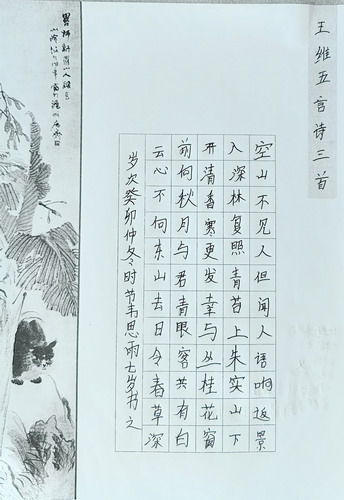 王维五言诗三首
空山不见人但闻人语响返景
入深林复照青苔上朱实山下
开清香寒更发幸与丛桂花窗
前向秋月与君青眼客共有白
云心不向东山去日令春草深
岁次癸卯仲冬时节韦思雨七岁书之